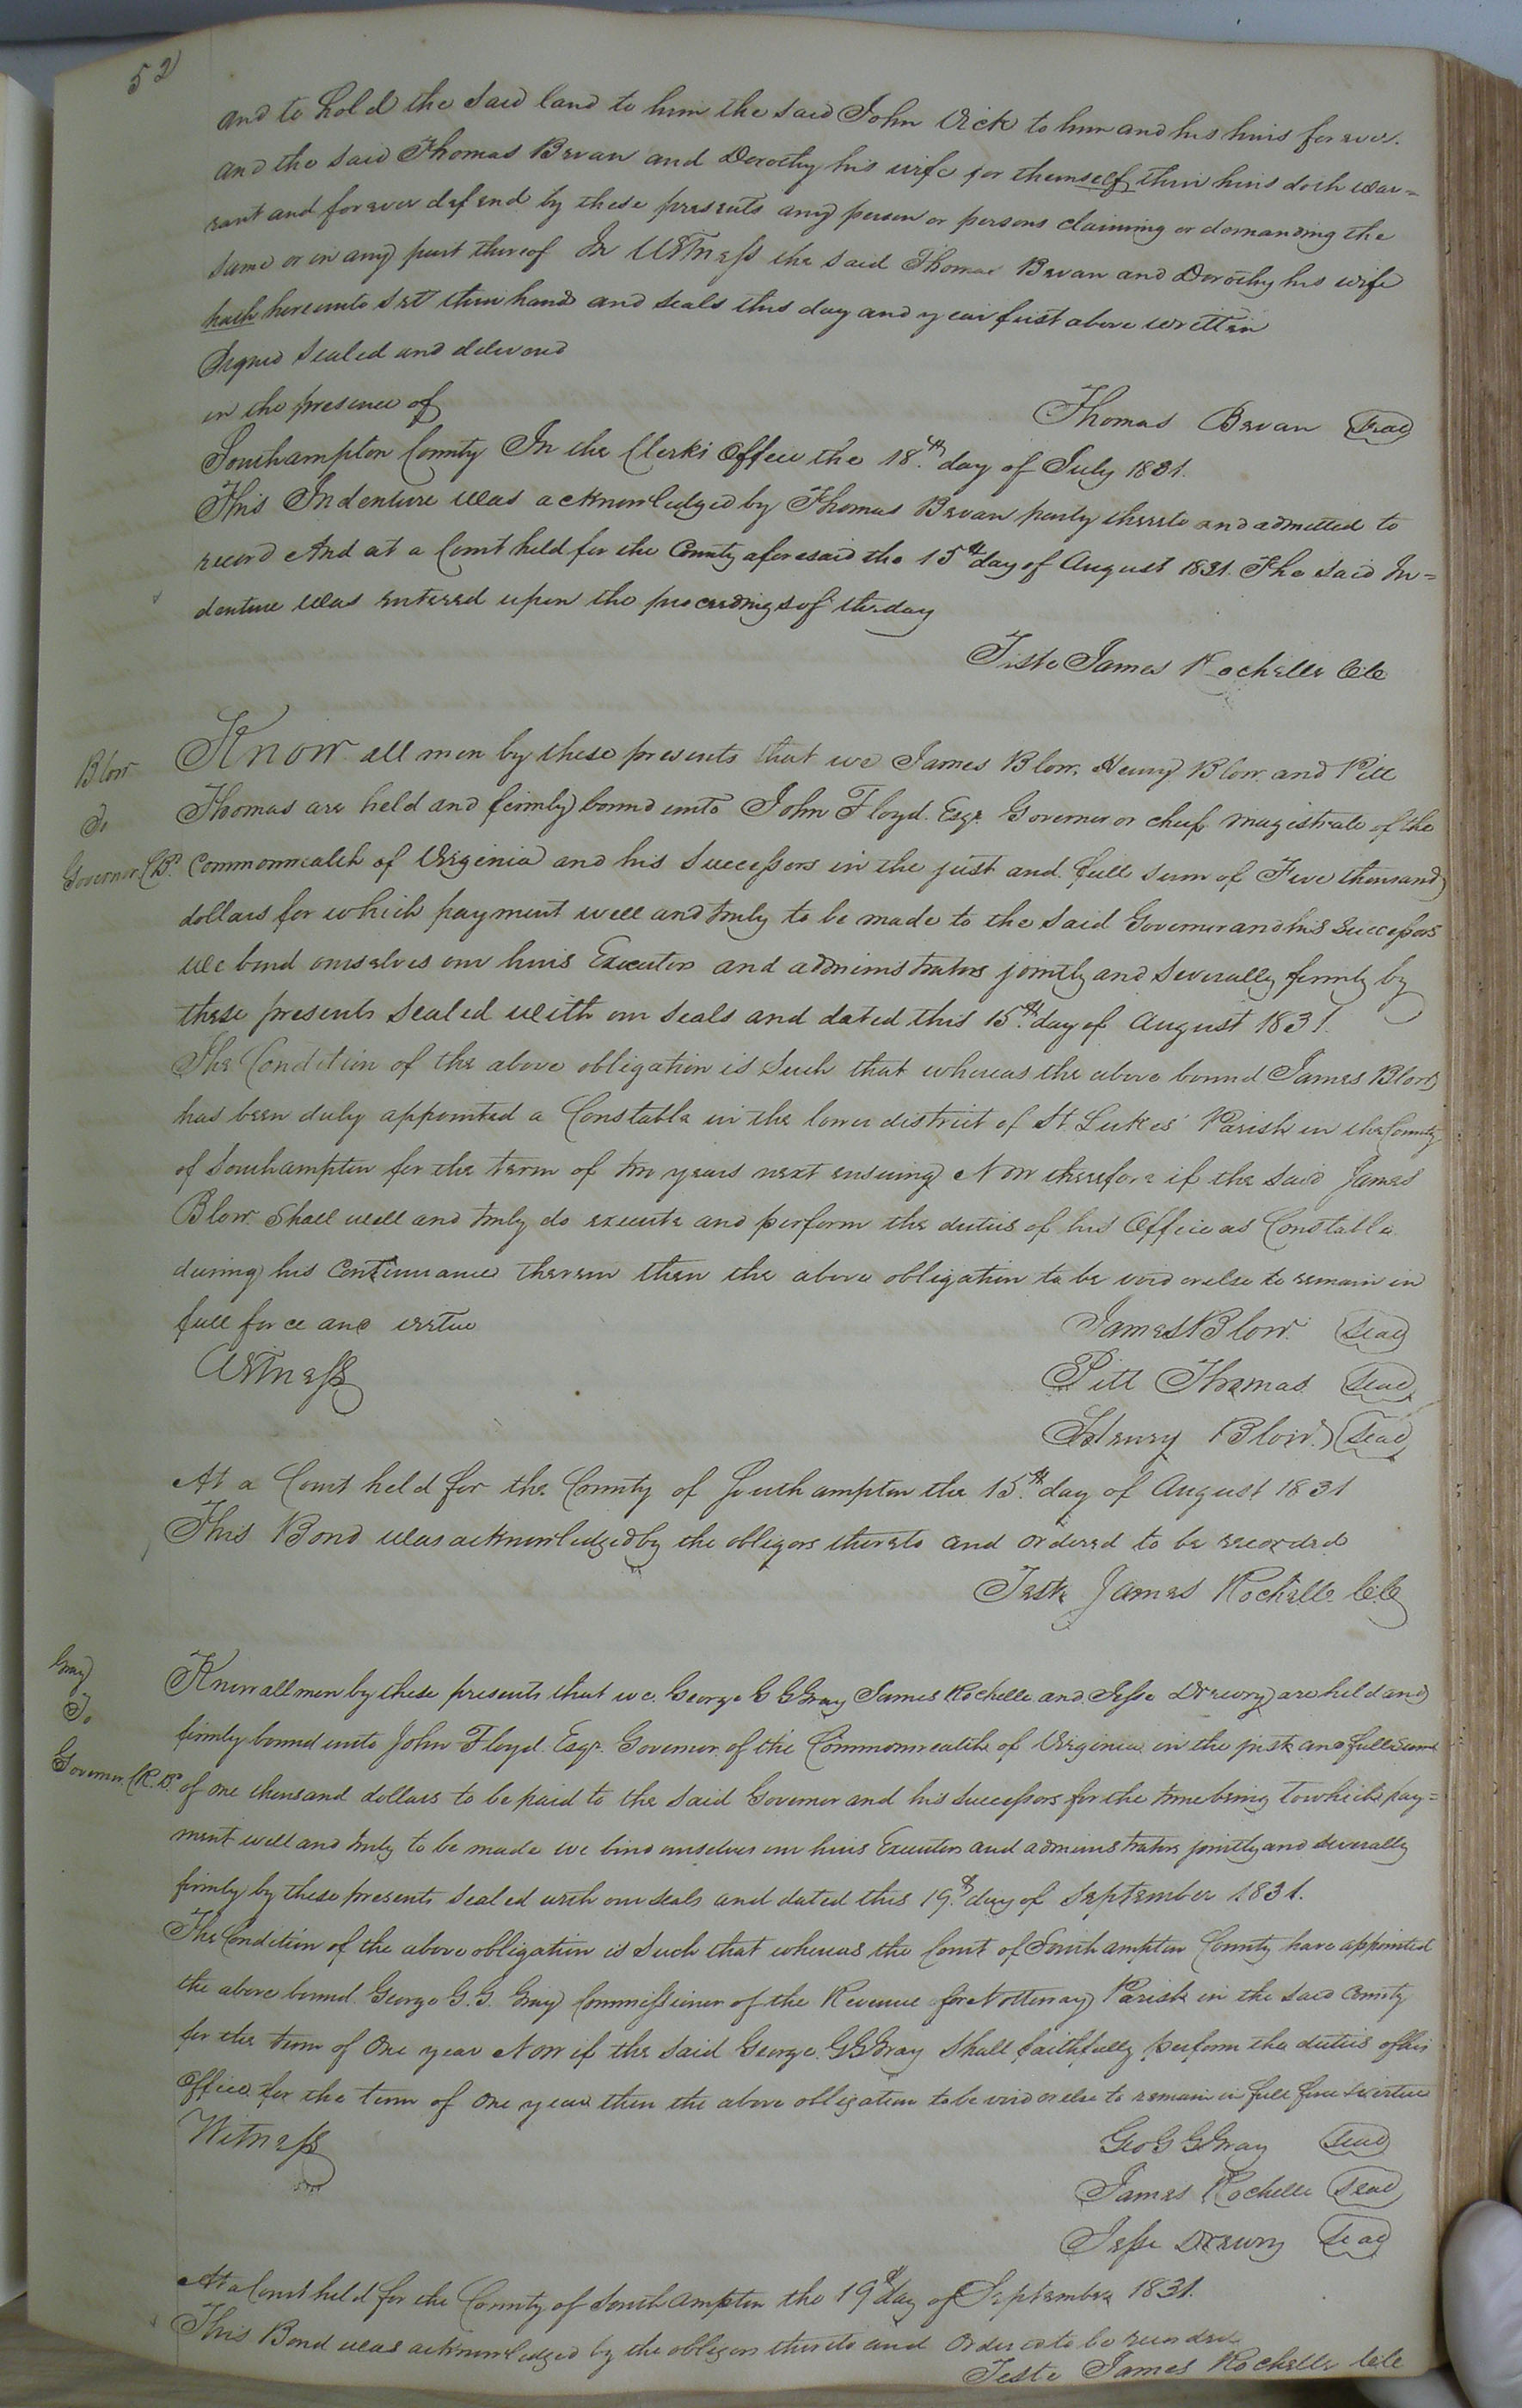 52
and to hold the said land to him the said John Vick to him and his heirs forever.
and the said Thomas Bevan and Dorothy his wife for themself their heirs doth war=
rant and forever defend by these presents any person or persons claiming or demanding the
same or in any part thereof In Witness the said Thomas Bevan and Dorothy his wife
hath hereunto set their hands and seals this day and year first above written
Signed Sealed and delivered
in the presence of
Thomas Bevan Seal
Southampton County In the Clerks Office the 18th day of July 1831.
This Indenture was acknowledged by Thomas Bevan party thereto and admitted to
record And at a Court held for the County aforesaid the 15th day of August 1831. The said In=
denture was entered upon the proceedings of the day
Teste James Rochelle
Blow
To
Governor
Know all men by these presents that we James Blow, Henry Blow and Pitt
Thomas are held and firmly bound unto John Floyd Esqr. Governor or cheif magistrate of the
Commonwealth of Virginia and his Successors in the just and full sum of Five thousand
dollars for which payment well and truly to be made to the said Governor and his successors
we bind ourselves our heirs Executors and administrators jointly and severally firmly by
these presents Sealed with our seals and dated this 15th day of August 1831.
The Condition of the above obligation is Such that whereas the above bound James Blow
has been duly appointed a Constable in the lower district of St. Lukes' Parish in the County
of Southampton for the term of two years next ensuing Now therefore if the said James
Blow Shall well and truly do execute and perform the duties of his Office as Constable
during his Continuance therein then the above obligation to be void or else to remain in
full force and virtue
James Blow Seal
Witness
Pitt Thomas Seal
Henry Blow Seal
At a Court held for the County of Southampton the 15th day of August 1831
This Bond was acknowledged by the obligors thereto and ordered to be recorded
Teste James Rochelle
Gray
To
Governor
Know all men by these presents that we George G G Gray James Rochelle and Jesse Drewry are held and
firmly bound unto John Floyd Esqr. Governor of the Commonwealth of Virginia in the just and full sum
of one thousand dollars to be paid to the said Governor and his successors for the time being to which pay=
ment well and truly to be made we bind ourselves our heirs Executors and administrators jointly and severally
firmly by these presents Sealed with our seals and dated this 19th day of September 1831.
The Condition of the above obligation is Such that whereas the Court of Southampton County have appointed
the above bound George G. G. Gray Commissioner of the Revenue for Nottoway Parish in the said County
for the term of One year Now if the said George G G Gray shall faithfully perform the duties of his
Office for the term of one year then the above obligation to be void or else to remain in full force & virtue
Witness
Geo G G Gray Seal
James Rochelle Seal
Jesse Drewry Seal
At a Court held for the County of Southampton the 19th day of September 1831.
This Bond was acknowledged by the obligors thereto and Ordered to be recorded
Teste James Rochelle